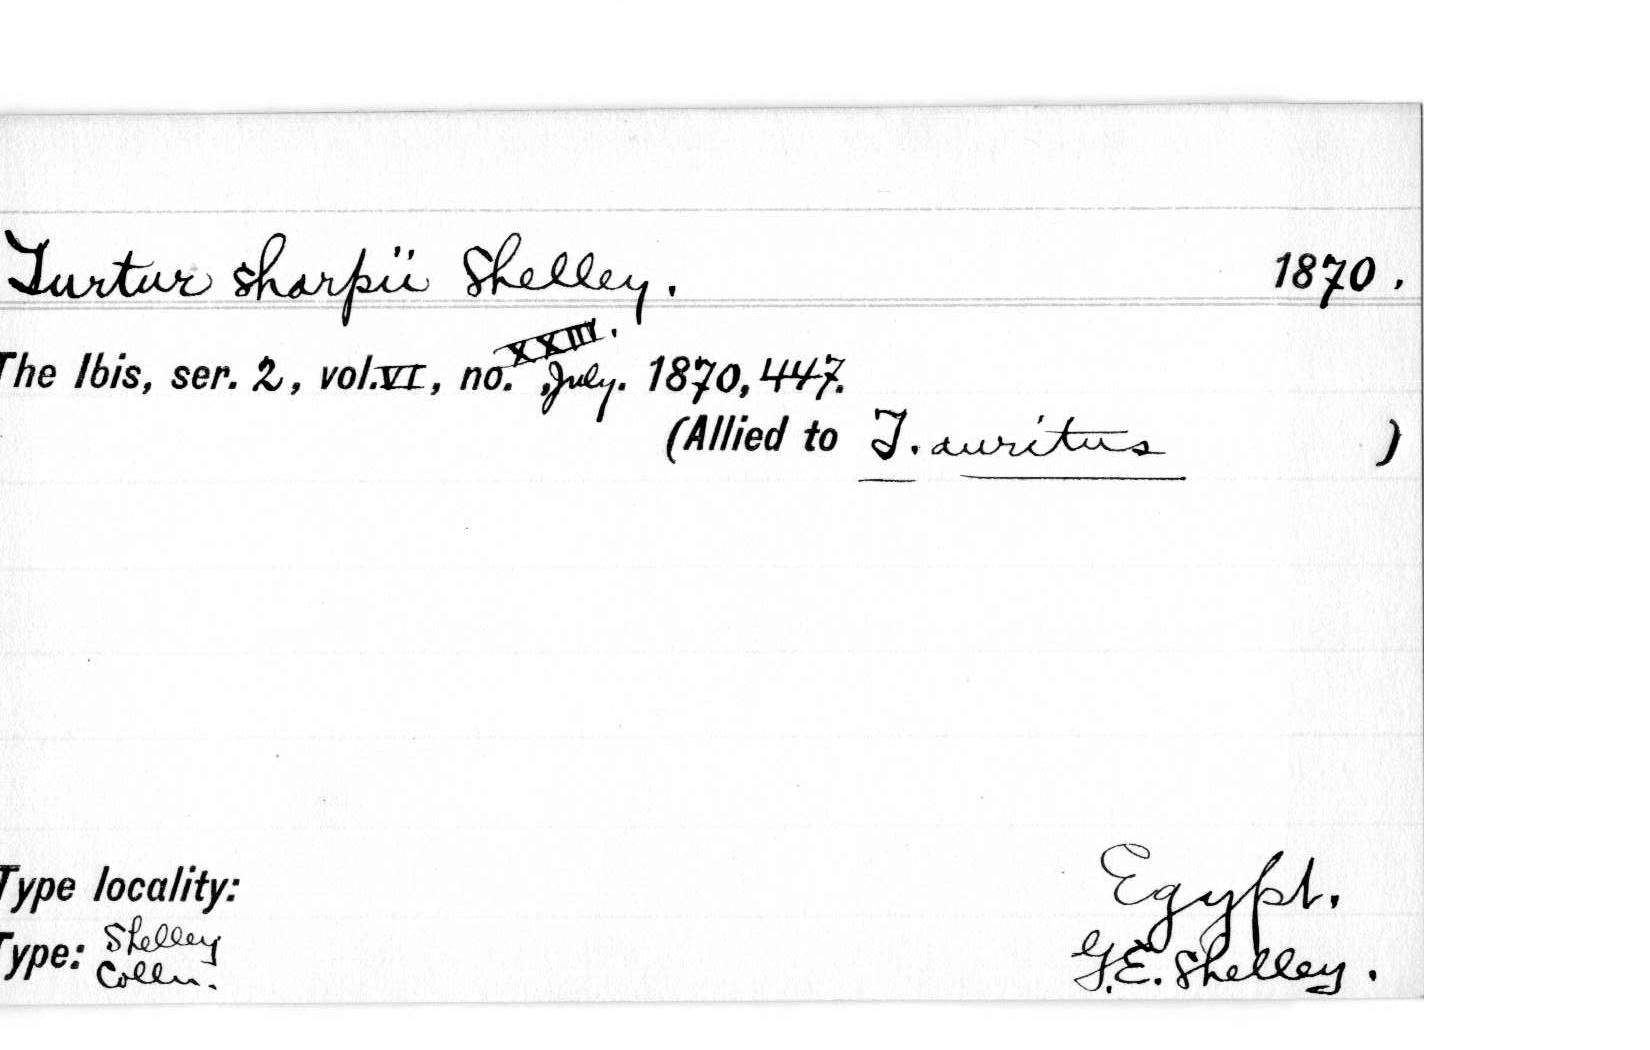 Turtur sharpii Shelley. 1870.
The Ibis, ser. 2, vol. VI, no. XXIII., July. 1870, 447.
(Allied to T. auritus )
Type locality: Egypt.
Type: Shelley Colln. G.E. Shelley.